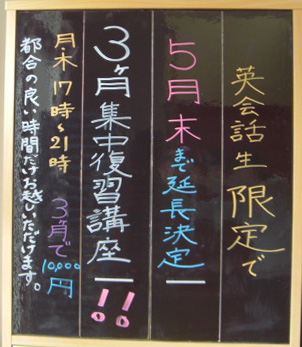 英会話生限定で
5月末まで延長決定ー
3ヶ月集中復習講座ー!!
月・木 17時〜21時
3ヶ月で10,000円
都合の良い時間だけお越しいただけます。